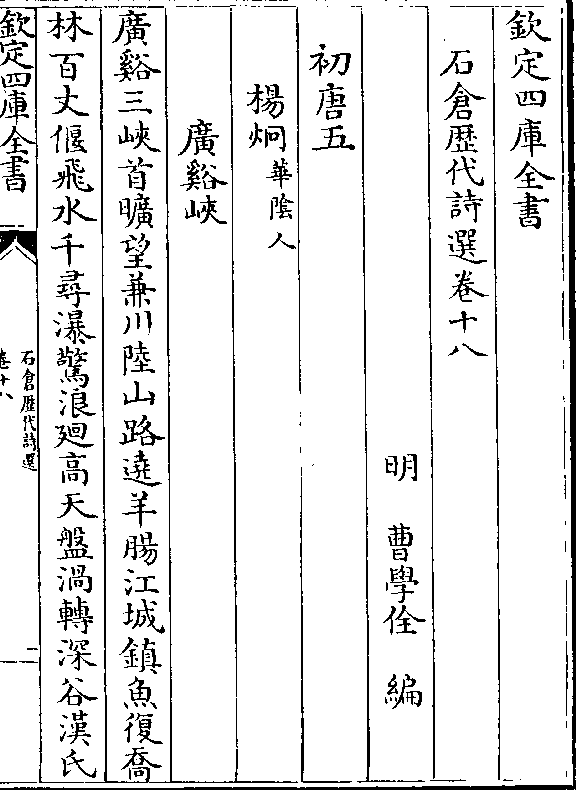 欽定四庫全書
石倉歴代詩選卷十八
明 曹學佺 編
初唐五
楊炯華陰人
廣谿峽
廣谿三峽首曠望兼川陸山路遶羊腸江城鎮魚復喬
林百丈偃飛水千尋瀑驚浪廻高天盤渦轉深谷漢氏
欽定四庫全書
石倉歴代詩選
卷十八